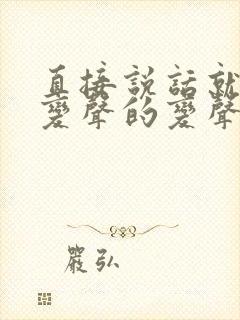 直接說話就
變聲的變聲
嚴弘